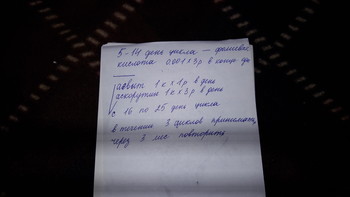 5-14 день цикла — фолиевая
кислота 0.001 х 3р в конце
аевит 1к х 1р в день
аскорутин 1к х 3р в день
с 16 по 25 день цикла
в течении 3 циклов принимать,
через 3 мес повторить